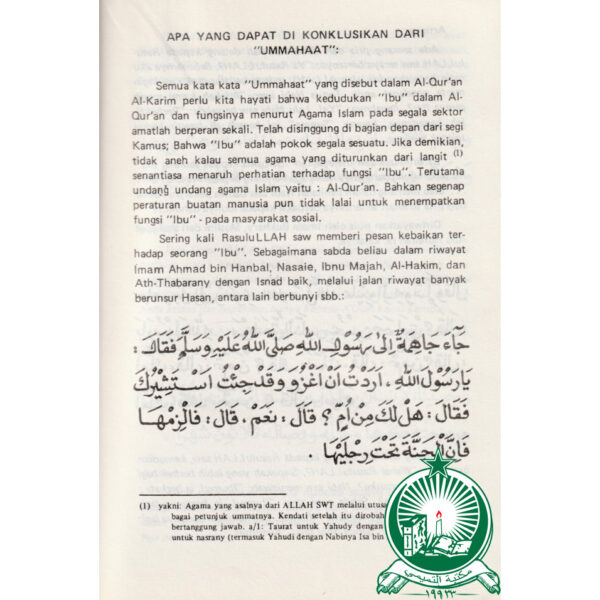 APA YANG DAPAT DI KONKLUSIKAN DARI
"UMMAHAAT":
Semua kata kata "Ummahaat" yang disebut dalam Al-Qur'an
Al-Karim perlu kita hayati bahwa kedudukan "Ibu" dalam Al-
Qur'an dan fungsinya menurut Agama Islam pada segala sektor
amatlah berperan sekali. Telah disinggung di bagian depan dari segi
Kamus; Bahwa "Ibu" adalah pokok segala sesuatu. Jika demikian,
tidak aneh kalau semua agama yang diturunkan dari langit (1)
senantiasa menaruh perhatian terhadap fungsi "Ibu". Terutama
undang undang agama Islam yaitu : Al-Qur'an. Bahkan segenap
peraturan buatan manusia pun tidak lalai untuk menempatkan
fungsi "Ibu" - pada masyarakat sosial.
Sering kali RasuluLLAH saw memberi pesan kebaikan ter-
hadap seorang "Ibu". Sebagaimana sabda beliau dalam riwayat
Imam Ahmad bin Hanbal, Nasaie, Ibnu Majah, Al-Hakim, dan
Ath-Thabarany dengan Isnad baik, melalui jalan riwayat banyak
berunsur Hasan, antara lain berbunyi sbb.:
جَآءَ جَاهِمَةٌ اِلَى رَسُوْلِ اللّٰهِ صَلَّى اللّٰهُ عَلَيْهِ وَسَلَّمَ فَقَالَ :
يَارَسُوْلَ اللّٰهِ ، اَرَدْتُ اَنْ اَغْزُوَ وَقَدْ جِئْتُ اَسْتَشِيْرُكَ
فَقَالَ : هَلْ لَكَ مِنْ اُمٍّ ؟ قَالَ : نَعَمْ ، قَالَ : فَالْزَمْهَا
فَاِنَّ الْجَنَّةَ تَحْتَ رِجْلَيْهَا .
(1) yakni: Agama yang asalnya dari ALLAH SWT melalui utusa
bagai petunjuk ummatnya. Kendati setelah itu dirobah
bertanggung jawab. a/1: Taurat untuk Yahudy dengan
untuk nasrany (termasuk Yahudi dengan Nabinya Isa bin
مكتبة التميمي
١٩٩٣